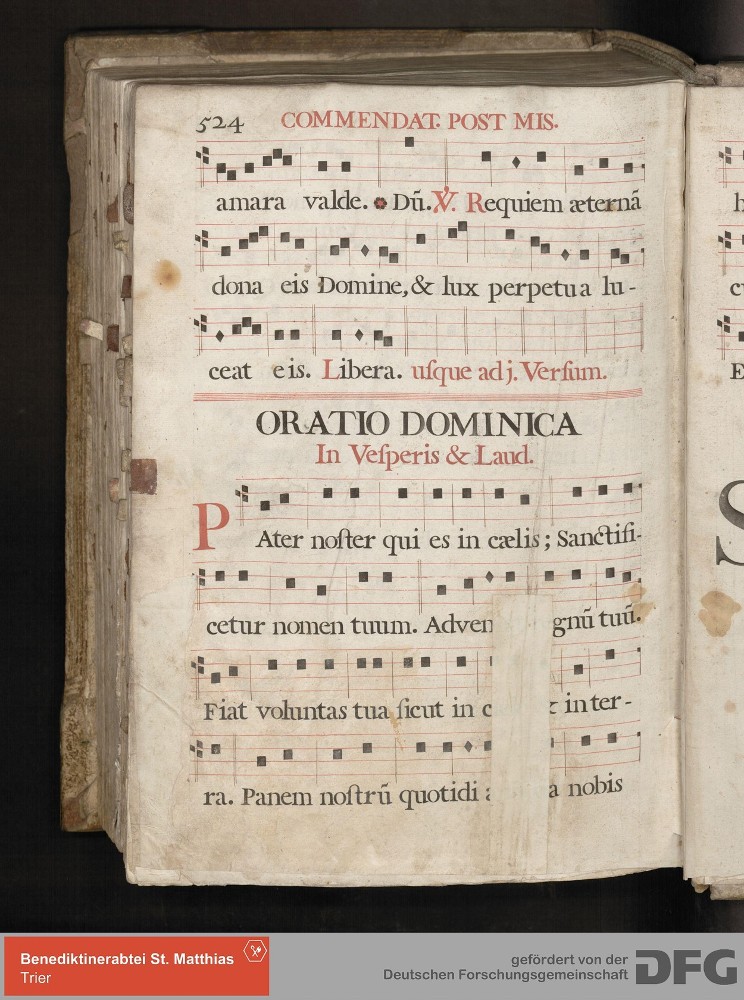 524 COMMENDAT. POST MIS.
amara valde. Dn̄. ℣. Requiem æternā
dona eis Domine, & lux perpetua lu-
ceat eis. Libera. uſque ad j. Verſum.
ORATIO DOMINICA
In Veſperis & Laud.
PAter noſter qui es in cælis; Sanctifi-
cetur nomen tuum. Adven gnū tuū.
Fiat voluntas tua ſicut in c & in ter-
ra. Panem noſtrū quotidi a nobis
h
E
S
Benediktinerabtei St. Matthias
Trier
gefördert von der
Deutschen Forschungsgemeinschaft
DFG